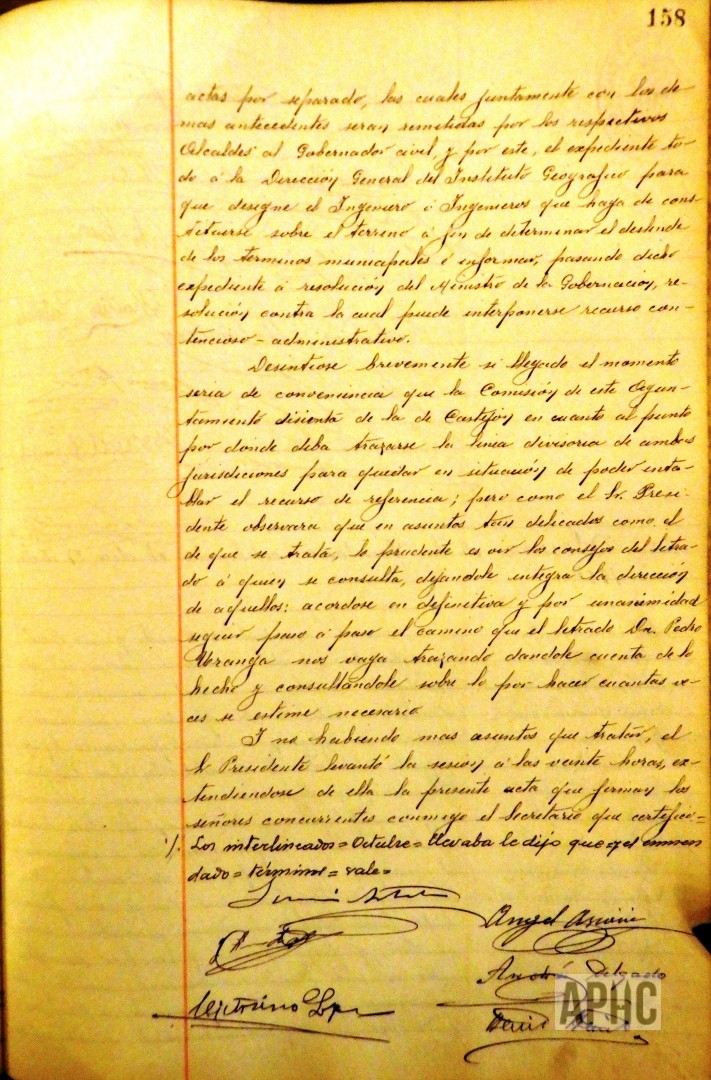 158
actas por separado, las cuales juntamente con los de-
mas antecedentes seran remitidas por los respectivos
Alcaldes al Gobernador civil, y por este, el expediente to-
do á la Dirección General del Instituto Geografico para
que designe el Ingeniero ó Ingenieros que haya de cons-
tituirse sobre el terreno á fin de determinar el deslinde
de los terminos municipales é informar, pasando dicho
expediente á resolución del Ministro de la Gobernación, re-
solución contra la cual puede interponerse recurso con-
tencioso-administrativo.
brevemente si llegado el momento
seria de conveniencia que la Comisión de este Ayun-
tamiento disienta de la de Castejon en cuanto al punto
por donde deba trazarse la linea divisoria de ambas
jurisdiciones para quedar en situación de poder enta-
blar el recurso de referencia; pero como el Sr. Presi-
dente observara que en asuntos tan delicados como el
de que se trata, lo prudente es oir los consejos del letra-
do á quien se consulta, dejandole integra la dirección
de aquellos: acordose en definitiva y por unanimidad
seguir paso á paso el camino que el letrado Dn. Pedro
Uranga nos vaya trazando dandole cuenta de lo
hecho y consultandole sobre lo por hacer cuantas ve-
ces se estime necesario
Y no habiendo mas asuntos que tratar, el
Sr Presidente levantó la sesion á las veinte horas, ex-
tendiendose de ella la presente acta que firman los
señores concurrentes conmigo el Secretario que certifico=
Los interlineados=Octubre=llevaba le dijo que y el enmen
dado=término=vale=
Angel
Andrés Delgado
Victorino
APHC